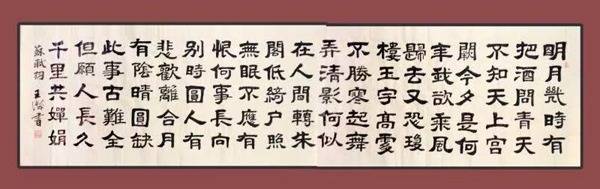 明月幾時有
把酒問青天
不知天上宮
闕今夕是何
年我欲乘風
歸去又恐瓊
樓玉宇高處
不勝寒起舞
弄清影何似
在人間轉朱
閣低綺戶照
無眠不應有
恨何事長向
別時圓人有
悲歡離合月
有陰晴圓缺
此事古難全
但願人長久
千里共嬋娟
蘇軾詞 王 書